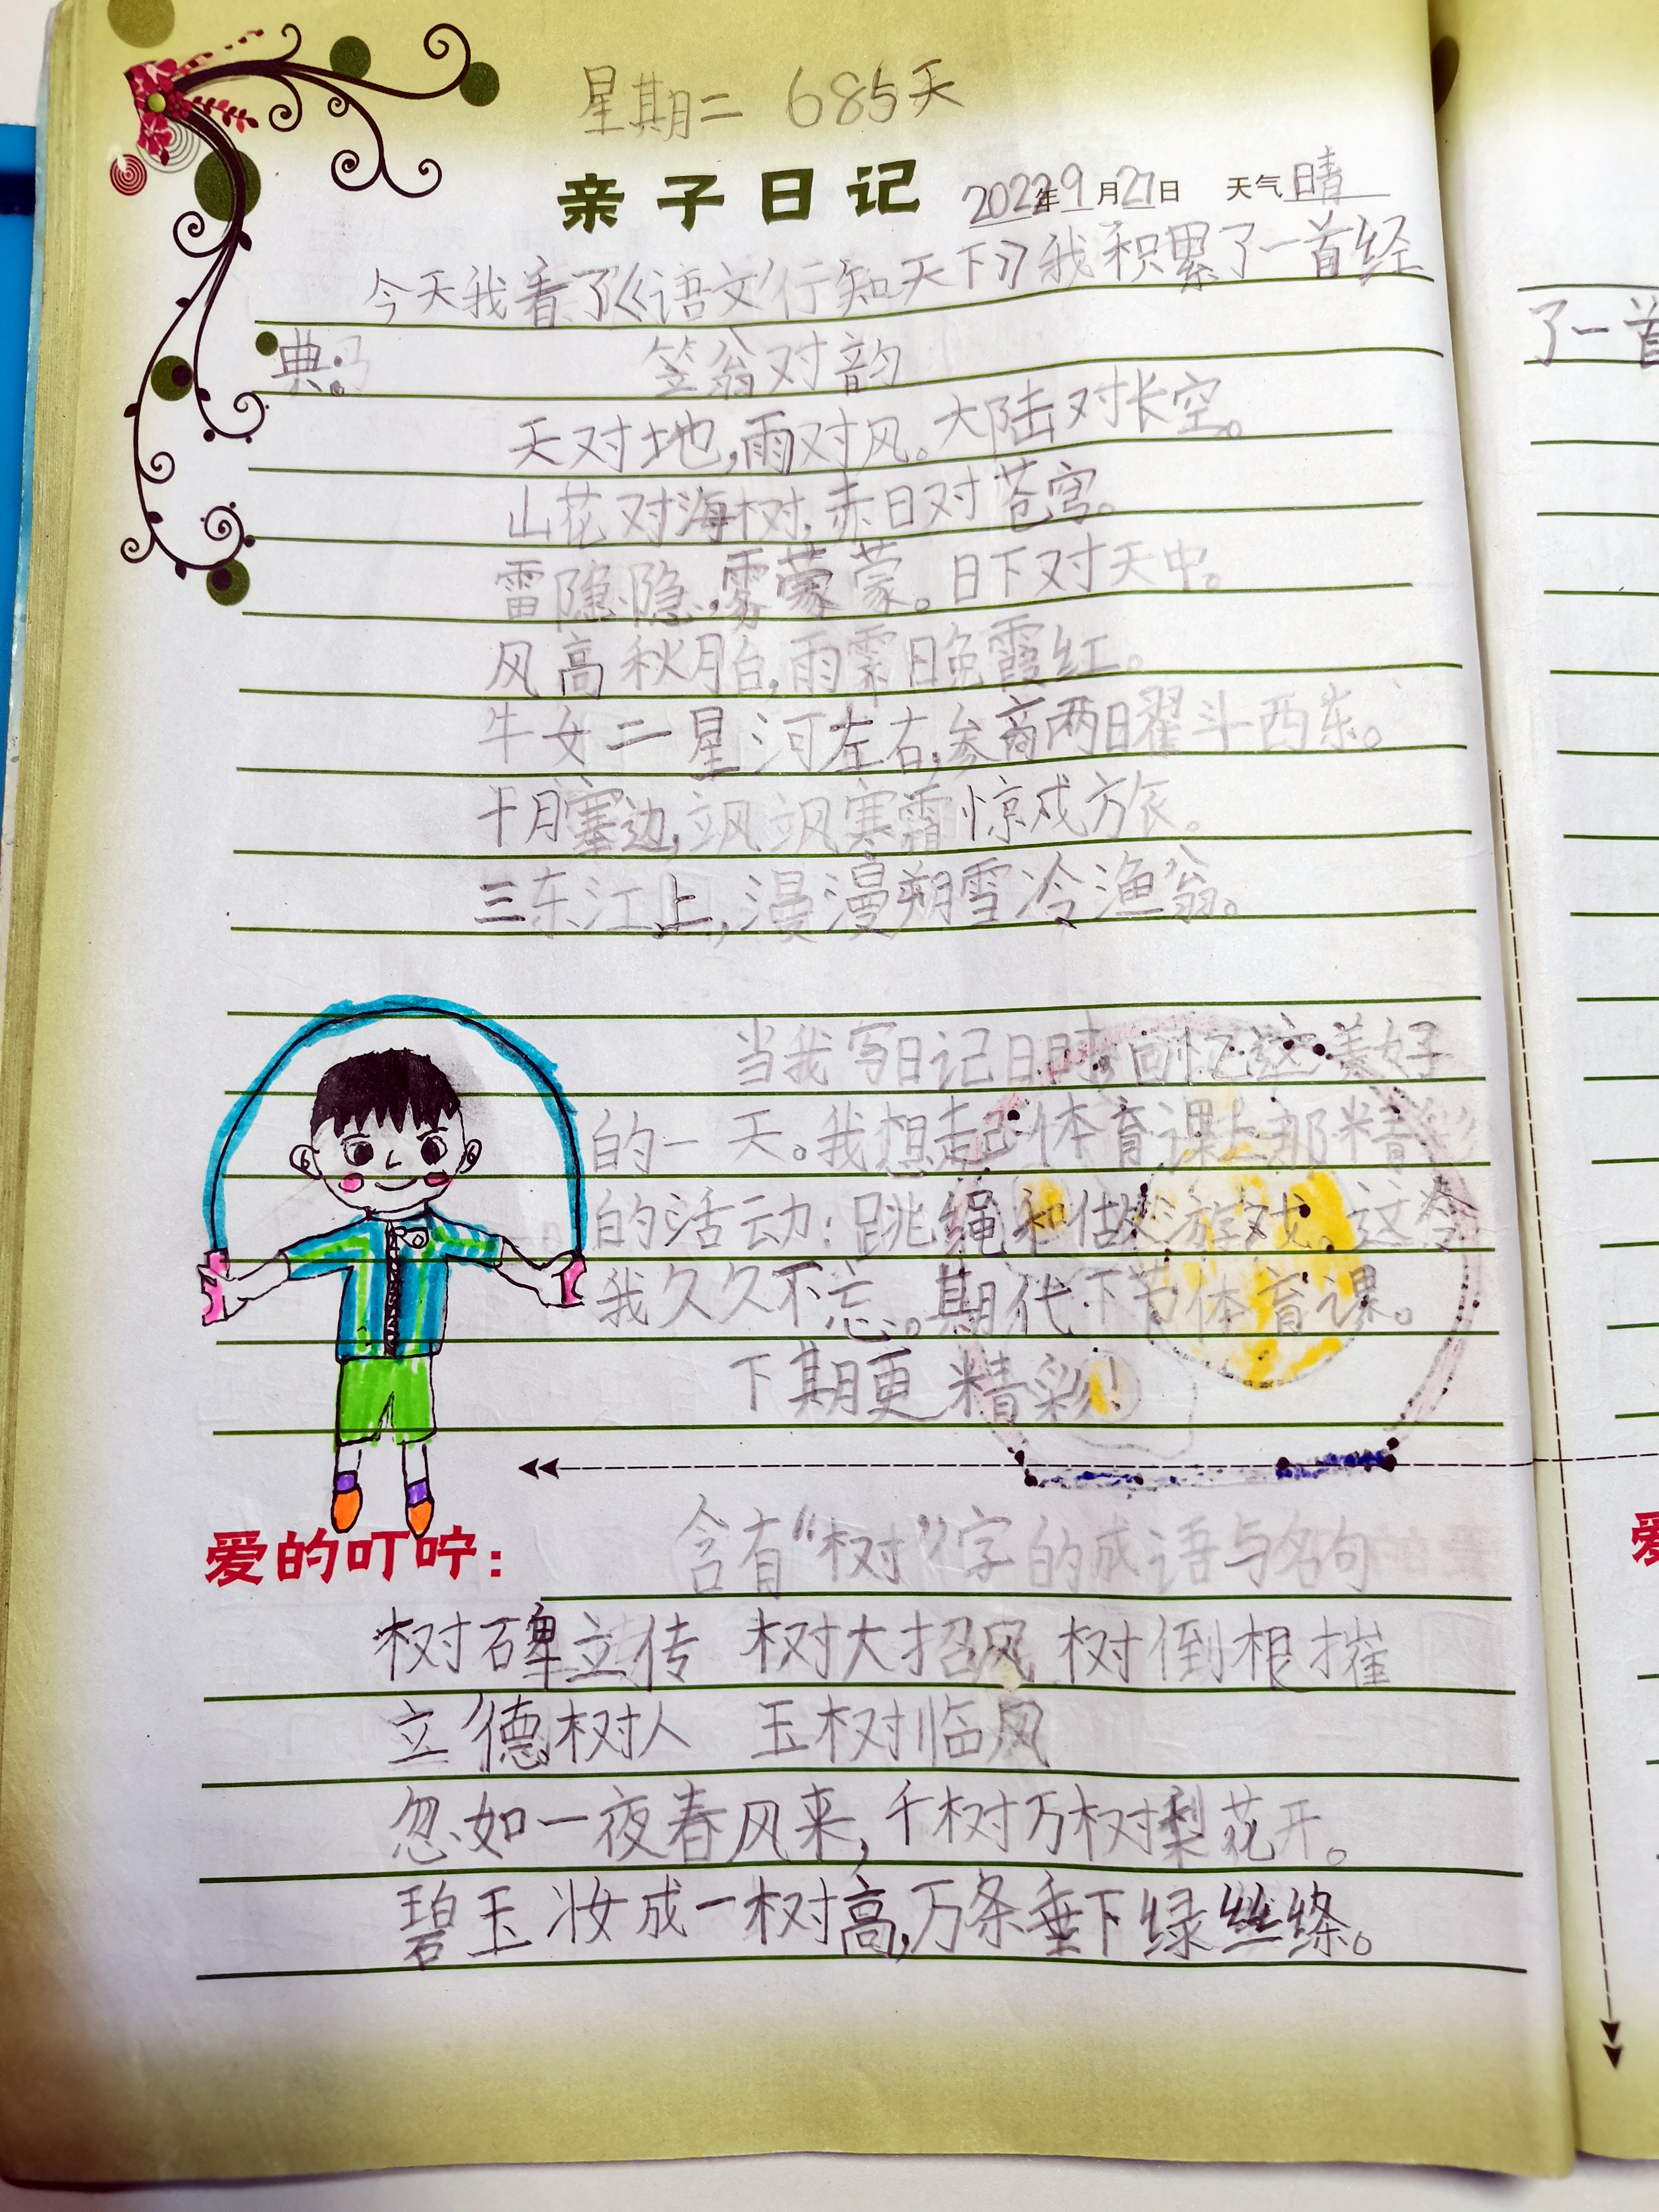 星期二 685天
亲子日记 2022年9月27日 天气 晴
今天我看了《语文行知天下》我积累了一首经
典:
笠翁对韵
天对地,雨对风。大陆对长空。
山花对海树,赤日对苍穹。
雷隐隐,雾蒙蒙。日下对天中。
风高秋月白,雨霁晚霞红。
牛女二星河左右,参商两曜斗西东。
十月塞边,飒飒寒霜惊成方旅。
三东江上,漫漫朔雪冷渔翁。
当我写日记时,回忆这美好
的一天。我想起体育课上那精彩
的活动:跳绳和做游戏。这令
我久久不忘。期待下节体育课。
下期更精彩!
爱的叮咛:
含有“树”字的成语与名句
树碑立传 树大招风 树倒根摧
立德树人 玉树临风
忽如一夜春风来,千树万树梨花开。
碧玉妆成一树高,万条垂下绿丝绦。
了一首